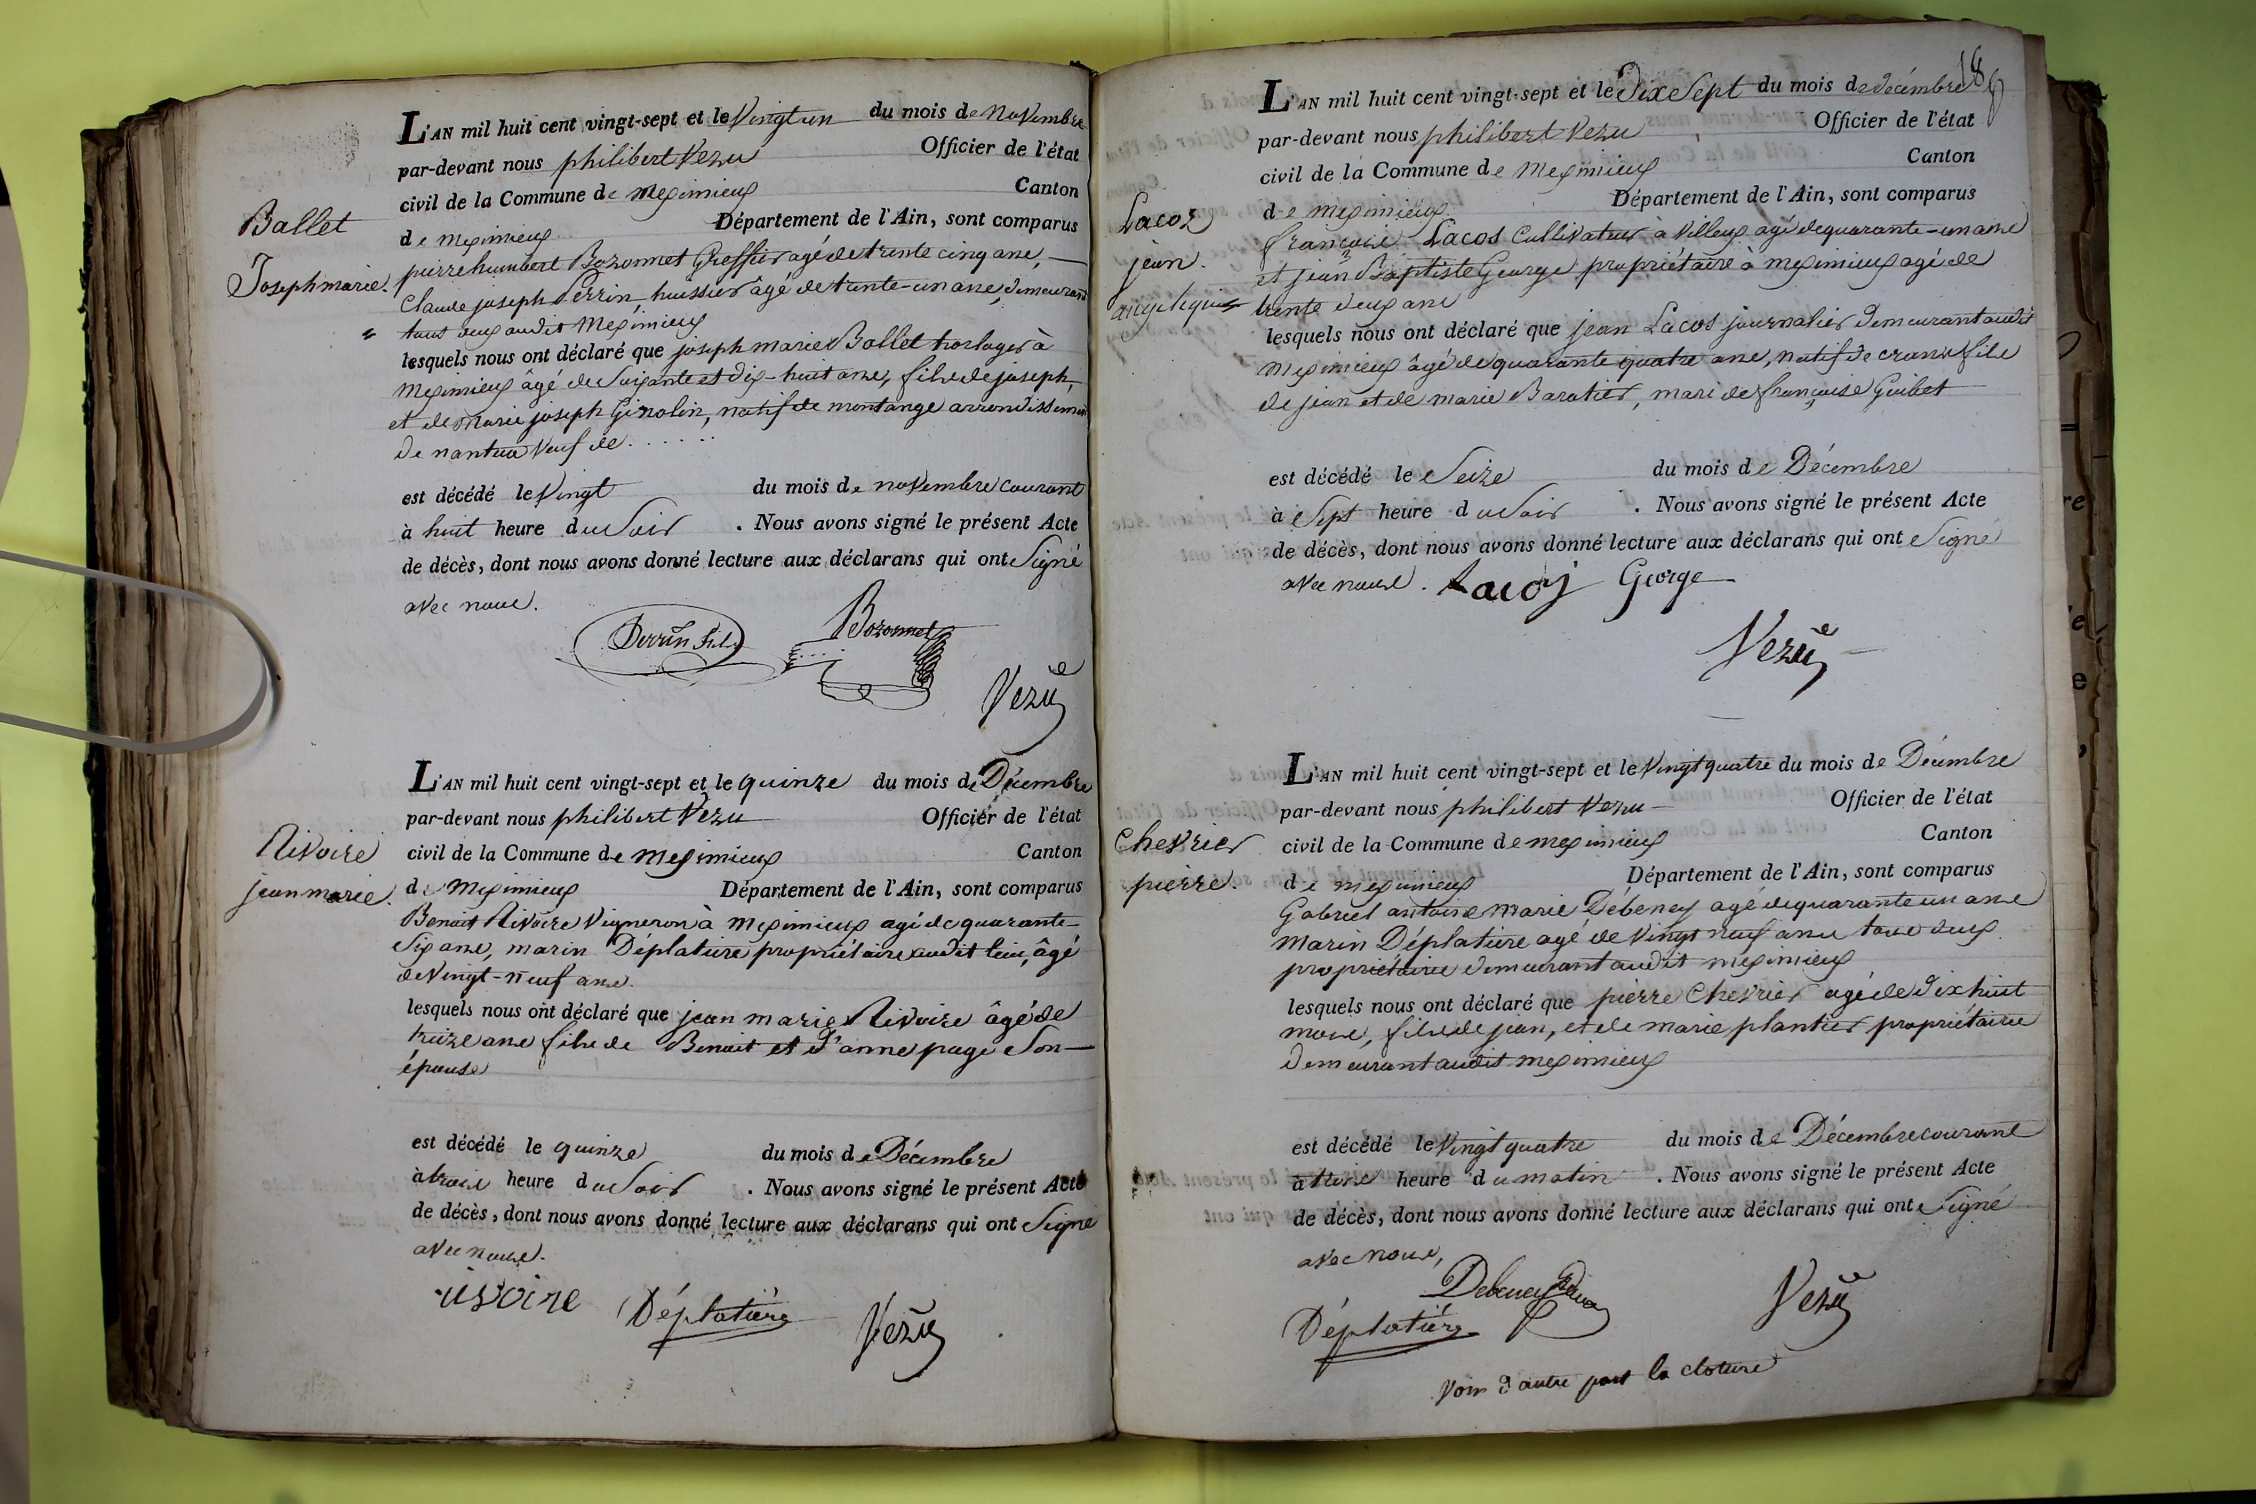 Ballet
Joseph marie.
L'AN mil huit cent vingt-sept et le Vingt un du mois de novembre
par-devant nous philibert Vezu Officier de l'état
civil de la Commune de meximieux Canton
de meximieux Département de l'Ain, sont comparus
pierre humbert Bozonnet Greffier agé de trente cinq ans,
Claude joseph Perrin huissier âgé de trente-un ans, demeurant
tous deux audit Meximieux
lesquels nous ont déclaré que joseph marie Ballet horloger à
Meximieux âgé de Soixante et dix-huit ans, fils de joseph,
et de Marie joseph Ginolin, natif de montange arrondissement
De nantua Veuf de . . . . . .
est décédé le Vingt du mois de novembre courant
à huit heure du Soir . Nous avons signé le présent Acte
de décès, dont nous avons donné lecture aux déclarans qui ont Signé
avec nous.
Perrin fils Bozonnet
Vezu
Rivoire
jean marie.
L'AN mil huit cent vingt-sept et le quinze du mois de Décembre
par-devant nous philibert Vezu Officier de l'état
civil de la Commune de meximieux Canton
de Meximieux Département de l'Ain, sont comparus
Benoit Rivoire Vigneron à meximieux agé de quarante
Six ans, marin Déplatière propriétaire audit lieu, âgé
de Vingt-neuf ans.
lesquels nous ont déclaré que jean marie Rivoire âgé de
treize ans fils de Benoit et d'anne page Son
épouse
est décédé le quinze du mois de Décembre
à trois heure du Soir . Nous avons signé le présent Acte
de décès, dont nous avons donné lecture aux déclarans qui ont Signé
avec nous.
rivoire Déplatière Vezu
18
Lacos
jean.
L'AN mil huit cent vingt-sept et le Dix Sept du mois de décembre
par-devant nous philibert Vezu Officier de l'état
civil de la Commune de Meximieux Canton
de meximieux Département de l'Ain, sont comparus
françois Lacos Cultivateur à Villeux agé de quarante-un ans
et jean Baptiste George propriétaire à meximieux agé de
trente deux ans
lesquels nous ont déclaré que jean Lacos journalier demeurant audit
Meximieux âgé de quarante quatre ans, natif de crans fils
de jean et de marie Baratier, mari de françoise Guibet
est décédé le Seize du mois de Décembre
à Sept heure du Soir . Nous avons signé le présent Acte
de décès, dont nous avons donné lecture aux déclarans qui ont Signé
avec nous. Lacos George
Vezu
Chevrier
pierre.
L'AN mil huit cent vingt-sept et le Vingt quatre du mois de Décembre
par-devant nous philibert Vezu Officier de l'état
civil de la Commune de meximieux Canton
de meximieux Département de l'Ain, sont comparus
Gabriel antoine marie Débeney agé de quarante un ans
Marin Déplatière agé de Vingt neuf ans tous deux
propriétaires demeurant audit meximieux
lesquels nous ont déclaré que pierre Chevrier agé de dix huit
mois, fils de jean, et de marie plantier propriétaires
demeurant audit meximieux
est décédé le Vingt quatre du mois de Décembre courant
à heure du matin . Nous avons signé le présent Acte
de décès, dont nous avons donné lecture aux déclarans qui ont Signé
avec nous,
Debeney
Déplatière Vezu
Voir d'autre part la cloture